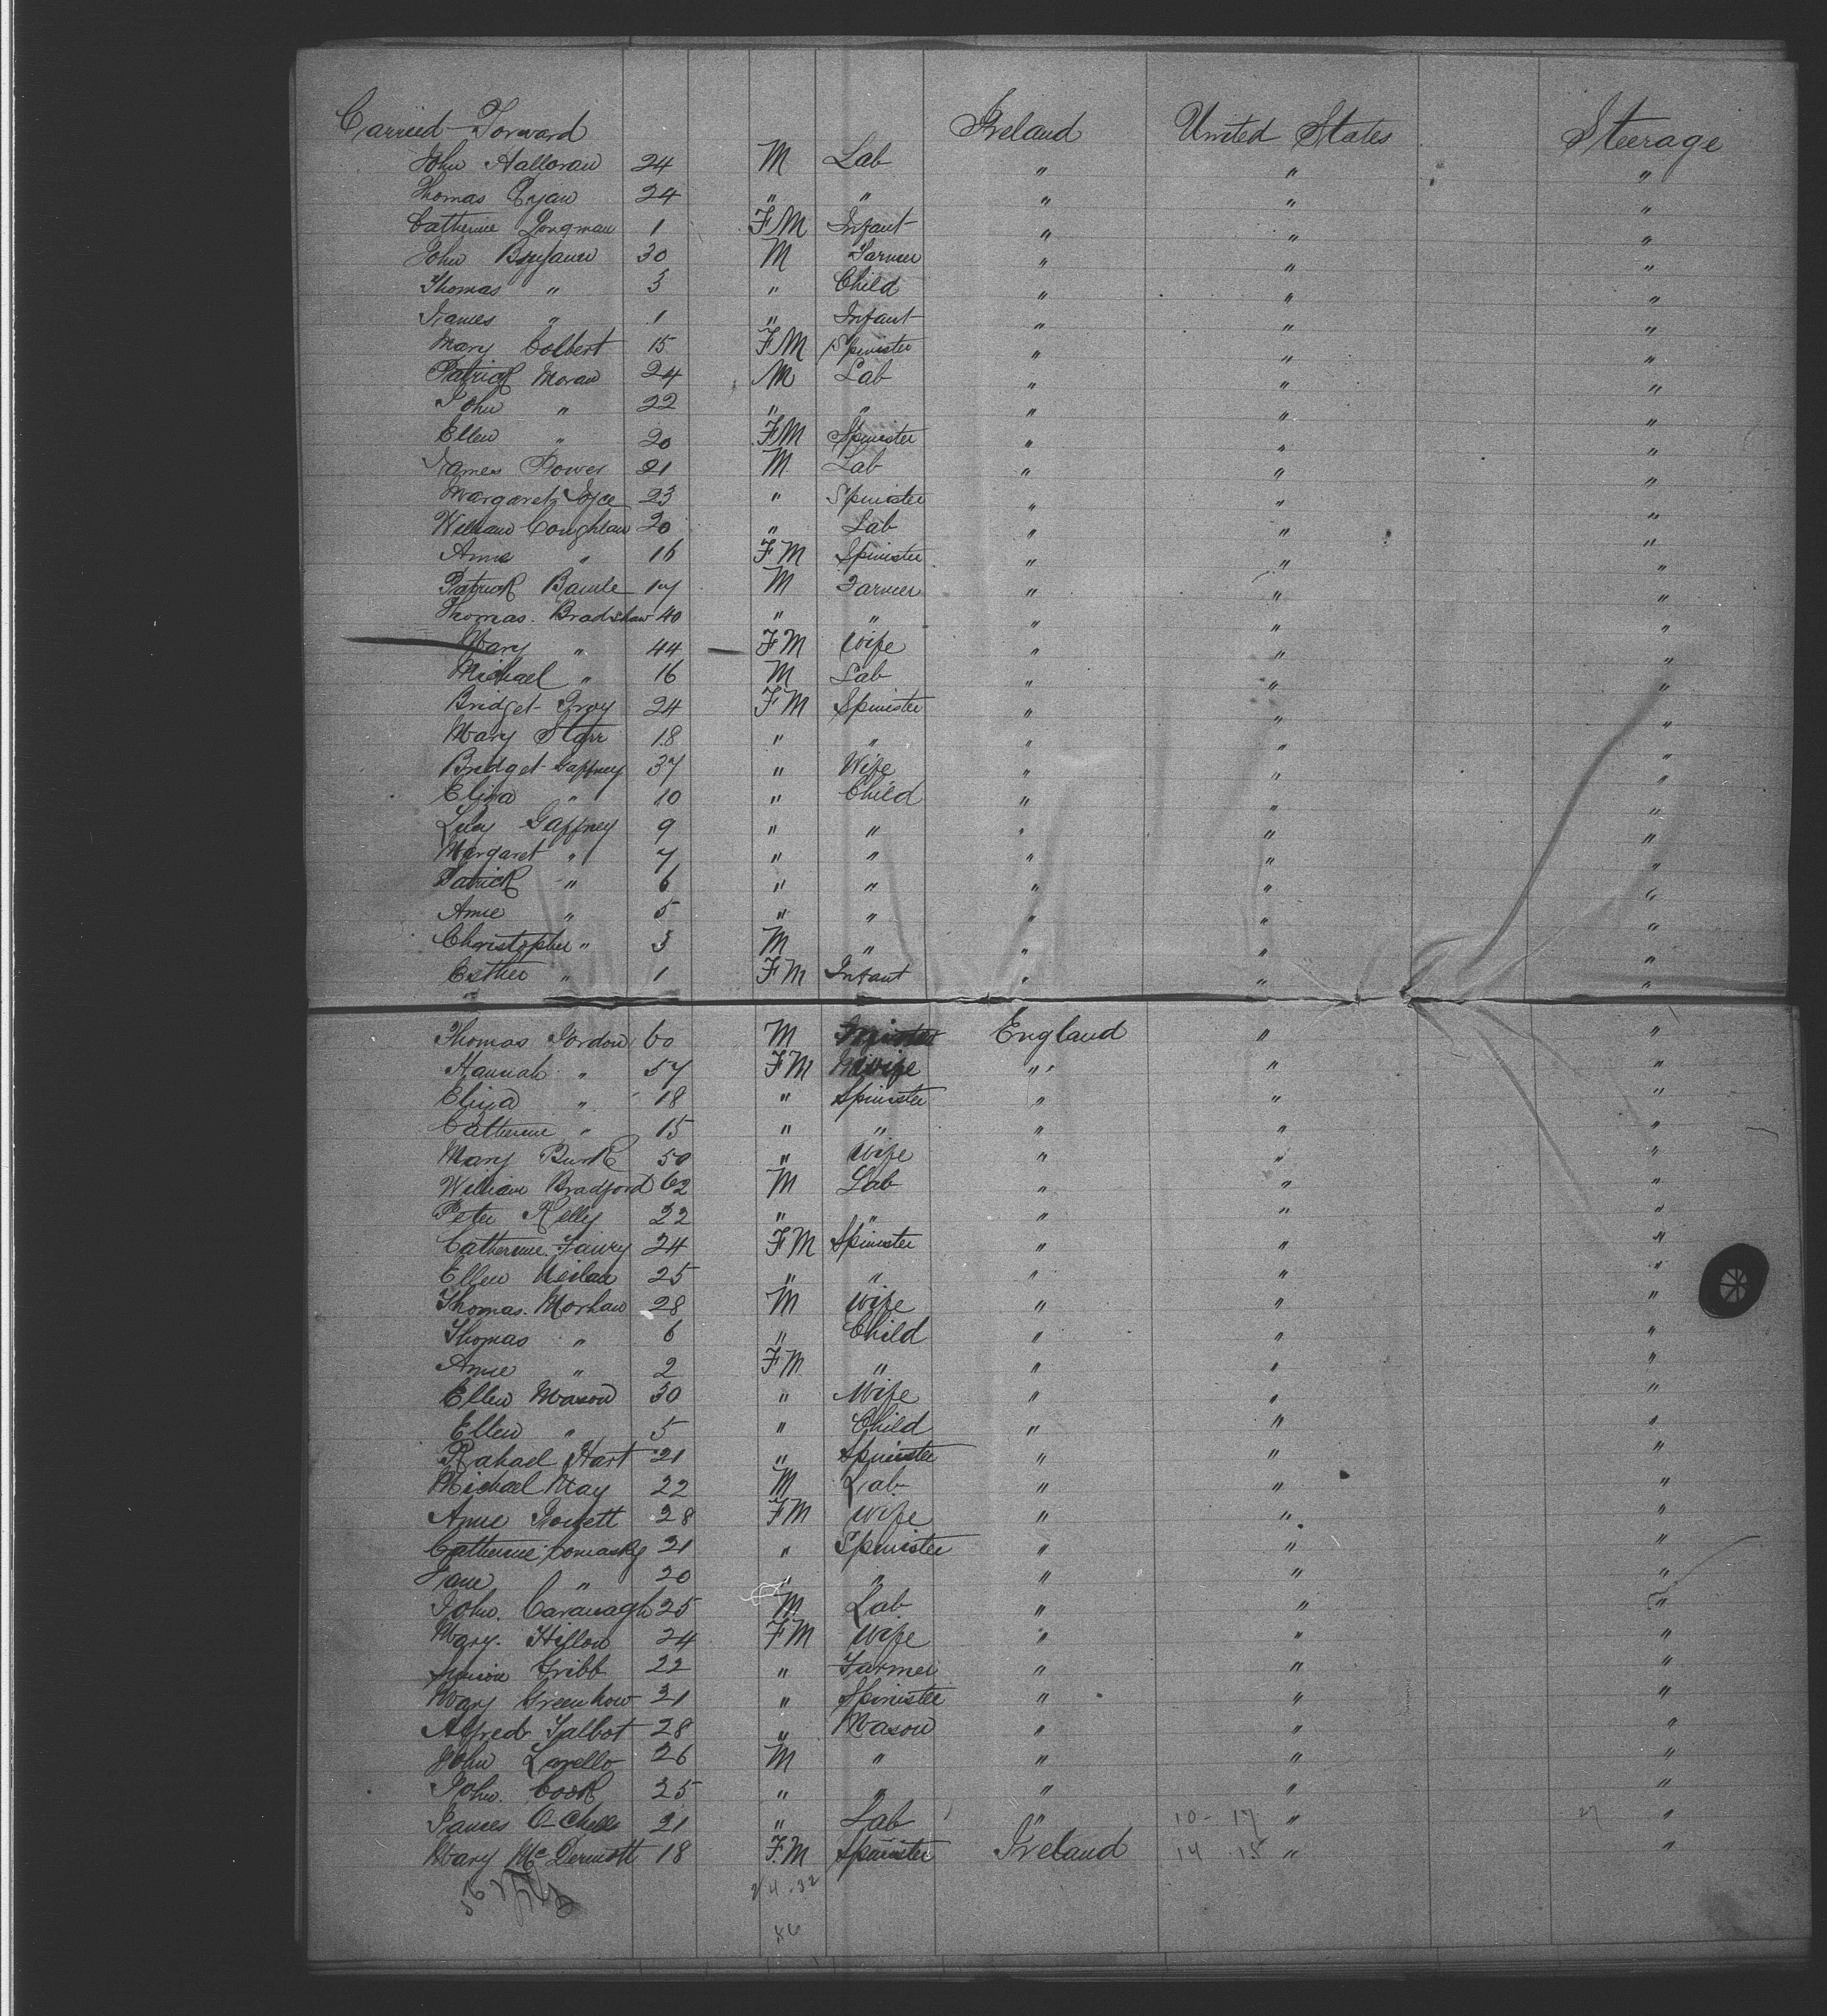 Carried Forward Ireland United States Steerage
John Halloran 24 M Lab " " "
Thomas Ryan 24 " " " " "
Catherine Longman 1 FM Infant " " "
John 30 M Farmer " " "
Thomas " 3 " Child " " "
James " 1 " Infant " " "
Mary Colbert 15 FM Spinster " " "
Patrick Moran 24 M Lab " " "
John " 22 " " " " "
Ellen " 20 FM Spinster " " "
James Power 21 M Lab " " "
Margaret Joyce 23 " Spinster " " "
William Coughlan 20 " Lab " " "
Anne " 16 FM Spinster " " "
Patrick 17 M Farmer " " "
Thomas. Bradshaw 40 " " " " "
Mary " 44 FM Wife " " "
Michael " 16 M Lab " " "
Bridget Gray 24 FM Spinster " " "
Mary Starr 18 " " " " "
Bridget Gaffney 37 " Wife " " "
Eliza " 10 " Child " " "
Lucy Gaffney 9 " " " " "
Margaret " 7 " " " " "
Patrick " 6 " " " " "
Anne " 5 " " " " "
Christopher " 3 M " " " "
Esther " 1 FM Infant " " "
Thomas Jordon 60 M England " "
Hannah " 57 FM Wife " " "
Eliza " 18 " Spinster " " "
Catherine " 15 " " " " "
Mary Burk 50 " Wife " " "
William Bradford 62 M Lab " " "
Peter Kelly 22 " " " " "
Catherine 24 FM Spinster " " "
Ellen 25 " " " " "
Thomas. 28 M Wife " " "
Thomas " 6 " Child " " "
Anne " 2 FM " " " "
Ellen Mason 30 " Wife " " "
Ellen " 5 " Child " " "
Rahael Hart 21 " Spinster " " "
Michael May 22 M Lab " " "
Anne 28 FM Wife " " "
Catherine Comasky 21 " Spinster " " "
Jane " 20 " " " " "
John. Cavanagh 25 M Lab " " "
Mary. Hillon 24 FM Wife " " "
Gribb 22 " Farmer " " "
Mary Greenhow 21 " Spinster " " "
Alfred Talbot 28 " Mason " " "
John 26 M " " " "
John. Cook 25 " " " " "
James 21 " Lab " 10-17 " 27 "
Mary McDermott 18 FM Spinster Ireland 14 15 " "
56 24.32